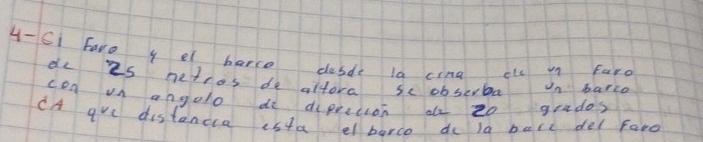 4-El Faro y el barco desde la cima de un Faro
de 25 metros de altora se obserba un barco
con un angulo de deprecion de 20 grados
cA que distancia esta el barco de la bace del Faro